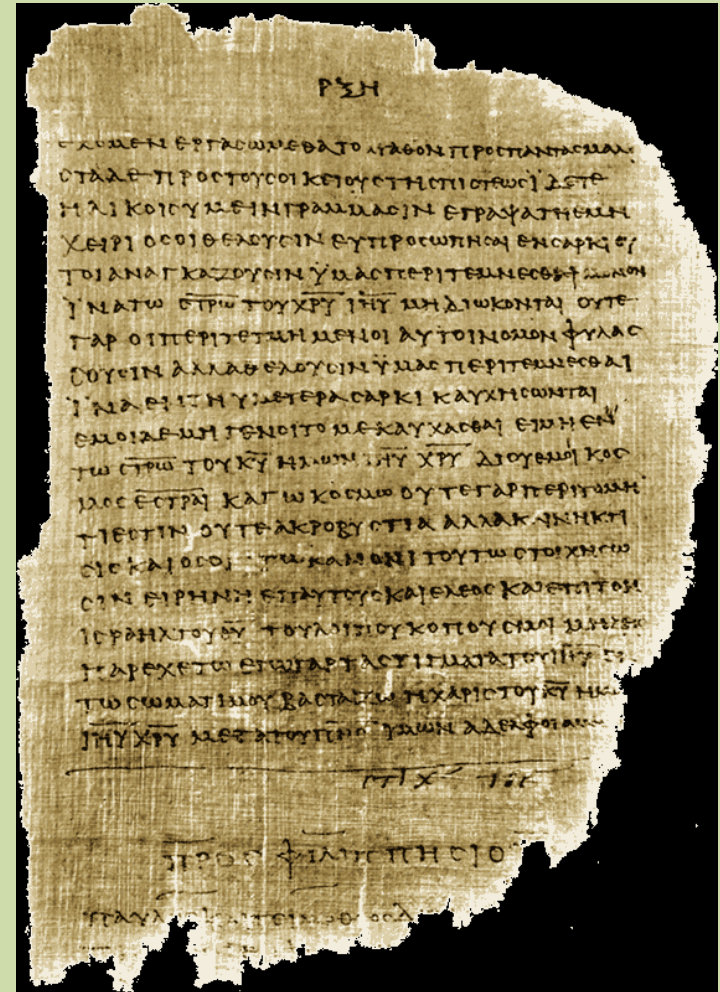 ΡΞΗ
ΕΧΟΜΕΝ ΕΡΓΑϹΩΜΕΘΑ ΤΟ ΑΓΑΘΟΝ ΠΡΟϹ ΠΑΝΤΑϹ
ΠΡΟϹ ΤΟΥϹ ΟΙΚΕΙΟΥϹ ΤΗϹ ΠΙϹΤΕΩϹ ΪΔΕΤΕ
ΗΛΙΚΟΙϹ ΥΜΕΙΝ ΓΡΑΜΜΑϹΙΝ ΕΓΡΑΨΑ ΤΗ ΕΜΗ
ΧΕΙΡΙ ΟϹΟΙ ΘΕΛΟΥϹΙΝ ΕΥΠΡΟϹΩΠΗϹΑΙ ΕΝ ϹΑΡΚΙ ΟΥ
ΤΟΙ ΑΝΑΓΚΑΖΟΥϹΙΝ ΫΜΑϹ ΠΕΡΙΤΕΜΝΕϹΘΑΙ ΜΟΝΟΝ
ΪΝΑ ΤΩ Ϲ̅Τ̅Ρ̅Ω̅ ΤΟΥ Χ̅Ρ̅Υ̅ Ι̅Η̅Υ̅ ΜΗ ΔΙΩΚΟΝΤΑΙ ΟΥΤΕ
ΓΑΡ ΟΙ ΠΕΡΙΤΕΤΜΗΜΕΝΟΙ ΑΥΤΟΙ ΝΟΜΟΝ ΦΥΛΑϹ
ϹΟΥϹΙΝ ΑΛΛΑ ΘΕΛΟΥϹΙΝ ΫΜΑϹ ΠΕΡΙΤΕΜΝΕϹΘΑΙ
ΪΝΑ ΕΝ ΤΗ ΥΜΕΤΕΡΑ ϹΑΡΚΙ ΚΑΥΧΗϹΩΝΤΑΙ
ΕΜΟΙ ΔΕ ΜΗ ΓΕΝΟΙΤΟ ΜΕ ΚΑΥΧΑϹΘΑΙ ΕΙ ΜΗ ΕΝ
ΤΩ Ϲ̅Τ̅Ρ̅Ω̅ ΤΟΥ Κ̅Υ̅ ΗΜΩΝ Ι̅Η̅Υ̅ Χ̅Ρ̅Υ̅ ΔΙ ΟΥ ΕΜΟΙ ΚΟϹ
ΜΟϹ Ε̅Ϲ̅Τ̅Ρ̅Α̅Ι̅ ΚΑΓΩ ΚΟϹΜΩ ΟΥΤΕ ΓΑΡ ΠΕΡΙΤΟΜΗ
ΤΙ ΕϹΤΙΝ ΟΥΤΕ ΑΚΡΟΒΥϹΤΙΑ ΑΛΛΑ ΚΑΙΝΗ ΚΤΙ
ϹΙϹ ΚΑΙ ΟϹΟΙ ΤΩ ΚΑΝΟΝΙ ΤΟΥΤΩ ϹΤΟΙΧΗϹΩ
ϹΙΝ ΕΙΡΗΝΗ ΕΠ ΑΥΤΟΥϹ ΚΑΙ ΕΛΕΟϹ ΚΑΙ ΕΠΙ ΤΟΝ
ΙϹΡΑΗΛ ΤΟΥ Θ̅Υ̅ ΤΟΥ ΛΟΙΠΟΥ ΚΟΠΟΥϹ ΜΟΙ ΜΗΔΕΙϹ
ΠΑΡΕΧΕΤΩ ΕΓΩ ΓΑΡ ΤΑ ϹΤΙΓΜΑΤΑ ΤΟΥ Ι̅Η̅Υ̅ ΕΝ
ΤΩ ϹΩΜΑΤΙ ΜΟΥ ΒΑϹΤΑΖΩ Η ΧΑΡΙϹ ΤΟΥ Κ̅Υ̅
Ι̅Η̅Υ̅ Χ̅Ρ̅Υ̅ ΜΕΤΑ ΤΟΥ Π̅Ν̅Ο̅Ϲ̅ ΥΜΩΝ ΑΔΕΛΦΟΙ ΑΜΗΝ
ϹΤΙΧ ΤΟΕ
ΠΡΟϹ ΦΙΛΙΠΠΗϹΙΟΥϹ
ΠΑΥΛΟϹ ΚΑΙ ΤΕΙΜΟΘΕΟϹ